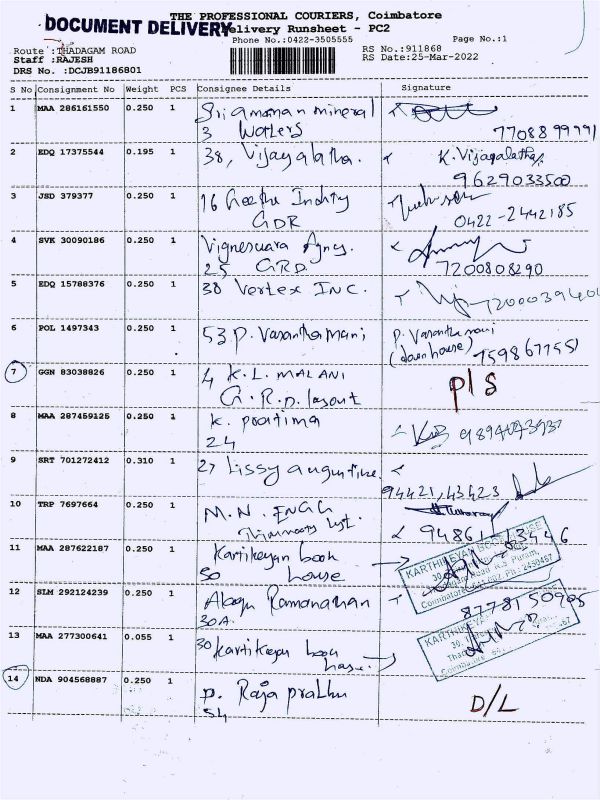 THE PROFESSIONAL COURIERS, Coimbatore
DOCUMENT DELIVERY
Delivery Runsheet - PC2
Phone No.:0422-3505555
Page No.:1
Route :THADAGAM ROAD
RS No.:911868
Staff :RAJESH
RS Date:25-Mar-2022
DRS No. :DCJB91186801
S No Consignment No Weight PCS Consignee Details Signature
1 MAA 286161550 0.250 1 Sri amman mineral
3 Waters 7708899991
2 EDQ 17375544 0.195 1 38, Vijayalatha. K.Vijayalatha
9629033500
3 JSD 379377 0.250 1 16 Geetha
GDR 0422-2442185
4 SVK 30090186 0.250 1 Vigneswara Agncy.
25 GRD. 7200808290
5 EDQ 15788376 0.250 1 38 Vertex INC.
6 POL 1497343 0.250 1 53 P. Vasanthamani P. Vasanthamani
(down house) 7598677551
7 GGN 83038826 0.250 1 4 K.L. MALANI P/S
G.R.D. layout
8 MAA 287459125 0.250 1 K. pratima
24
9 SRT 701272412 0.310 1 27 Lissy augustine
94421,43423
10 TRP 7697664 0.250 1 M.N. ENGG
11 MAA 287622187 0.250 1 Kartikeyan book
50 house
12 SLM 292124239 0.250 1 Ramanathan
30A.
13 MAA 277300641 0.055 1 30 Kartikeyan book
house
14 NDA 904568887 0.250 1 P. Raja prabhu D/L
54